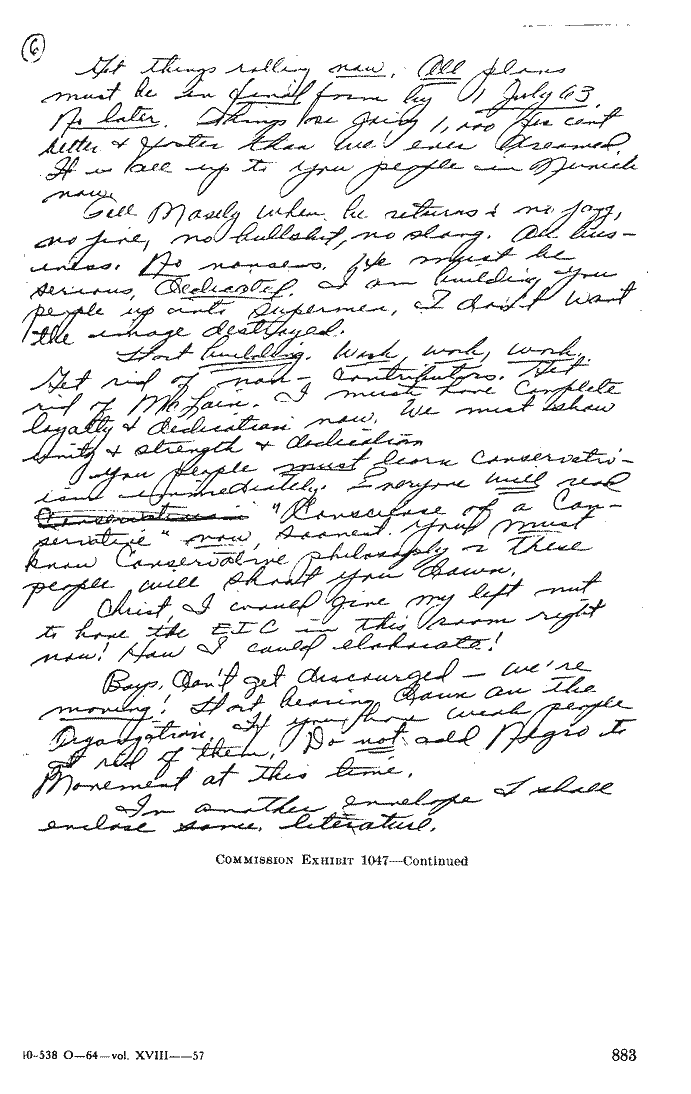 6
Get things rolling now. All plans
must be in final form by 1 July 63.
No later. Things are going 1,000 per cent
better & faster than we ever dreamed.
It is all up to you people in Munich
now.
Tell Mosely when he returns: no jazz,
no jive, no bullshit, no slang. All bus-
iness. No nonsens. We must be
serious, Dedicated. I am building you
people up into supermen, I don't want
the image destroyed.
Start building. Work, work, work.
Get rid of non-contributors. Get
rid of McLain. I must have complete
loyalty & dedication now. We must show
unity & strength & dedication
You people must learn conservati-
ism immediately. Everyone will read
Conservatism "Conscience of a Con-
servative" now, soonest. You must
know Conservative philosophy or these
people will shoot you down.
Christ, I would give my left nut
to have the EIC in this room right
now! How I could elaborate!
Boys, don't get discourged - we're
moving! Start bearing down on the
Organization. If you have weak people
get rid of them. Do not add Negro to
Movement at this time.
In another envelope I shall
enclose some literature.
COMMISSION EXHIBIT 1047—Continued
10-538 O—64—vol. XVIII——57
883